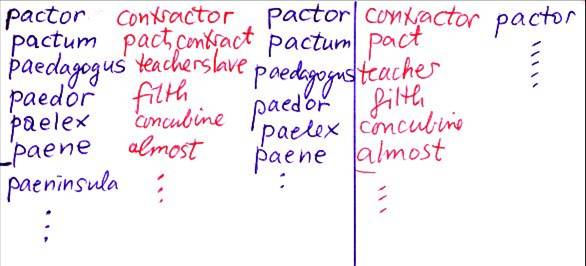 pactor contractor pactor contractor pactor
pactum pact, contract pactum pact
paedagogus teacherslave paedagogus teacher
paedor filth paedor filth
paelex concubine paelex concubine
paene almost paene almost
paeninsula